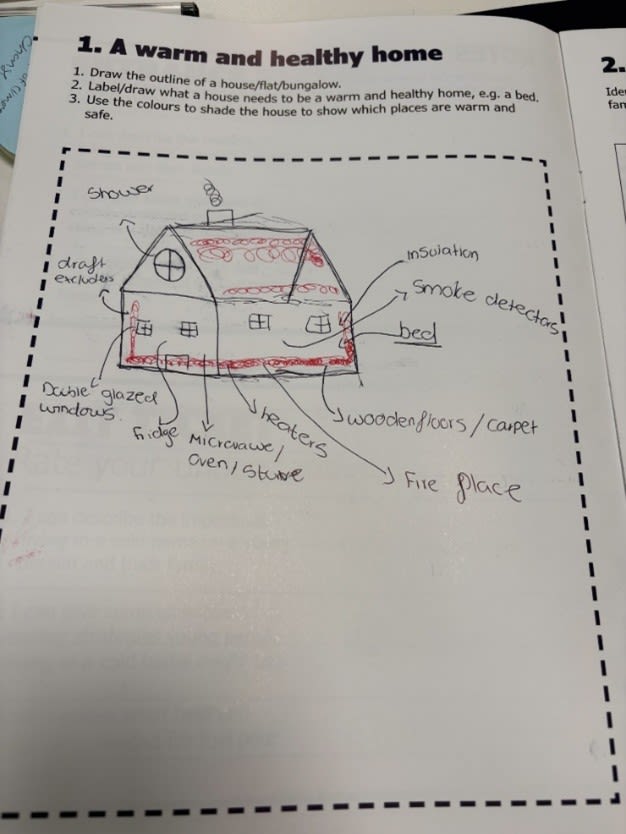 1. A warm and healthy home
1. Draw the outline of a house/flat/bungalow.
2. Label/draw what a house needs to be a warm and healthy home, e.g. a bed.
3. Use the colours to shade the house to show which places are warm and
safe.
2.
Ide
fam
shower
draft
excluders
insulation
smoke detectors
bed
Double glazed
windows.
Fridge
Microwave/
oven/stove
heaters
wooden floors/carpet
Fire place